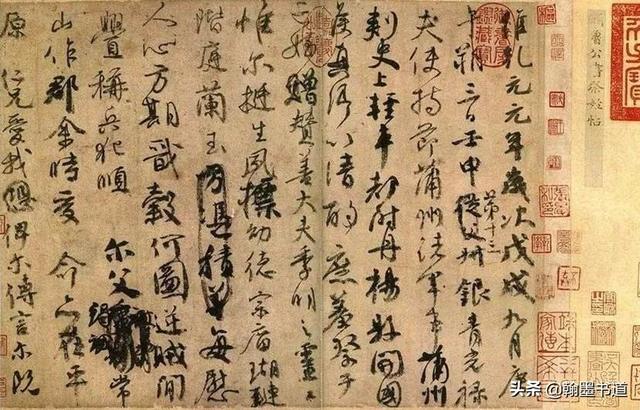 顏魯公書祭姪帖
維乾元元年歲次戊戌九月庚
午朔三日壬申第十三從父銀青光祿
夫使持節蒲州諸軍事蒲州
刺史上輕車都尉丹楊縣開國
侯真卿以清酌庶羞祭于
亡姪贈贊善大夫季明之靈
惟爾挺生夙標幼德宗廟瑚璉
階庭蘭玉方憑積善每慰
人心方期戩穀何圖逆賊間
釁稱兵犯順爾父竭誠常
山作郡余時受命亦在平
原仁兄愛我俾爾傳言爾既
头条 @翰墨书道